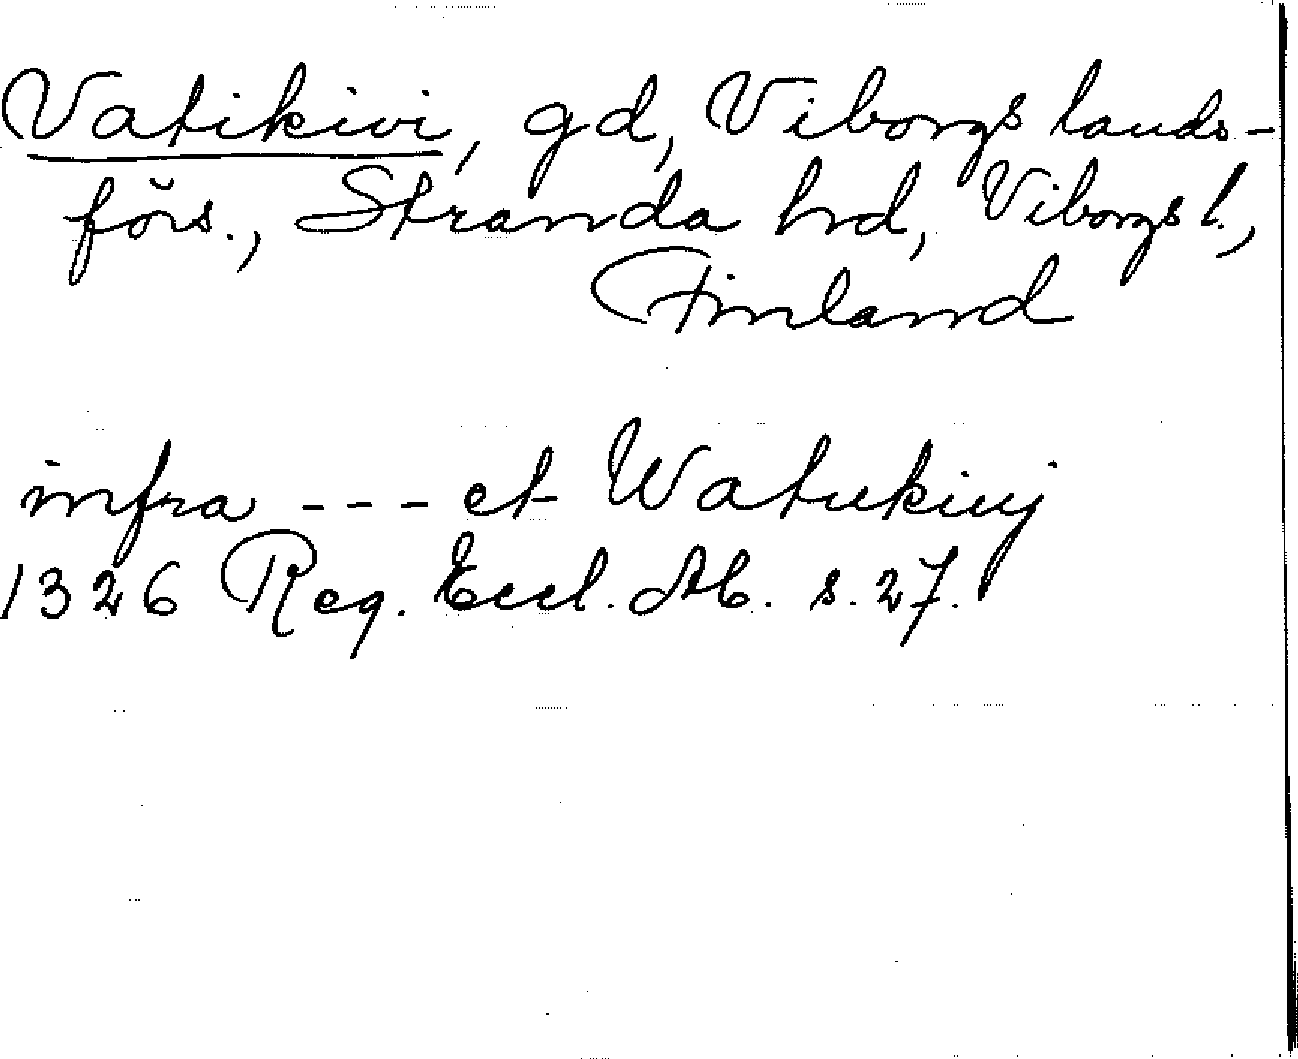 Vatikivi, gd, Viborgs lands-
förs., Stranda hd, Viborgs l.,
Finland
infra --- et Watukiuj
1326 Reg. Eccl. Ab. s. 27.